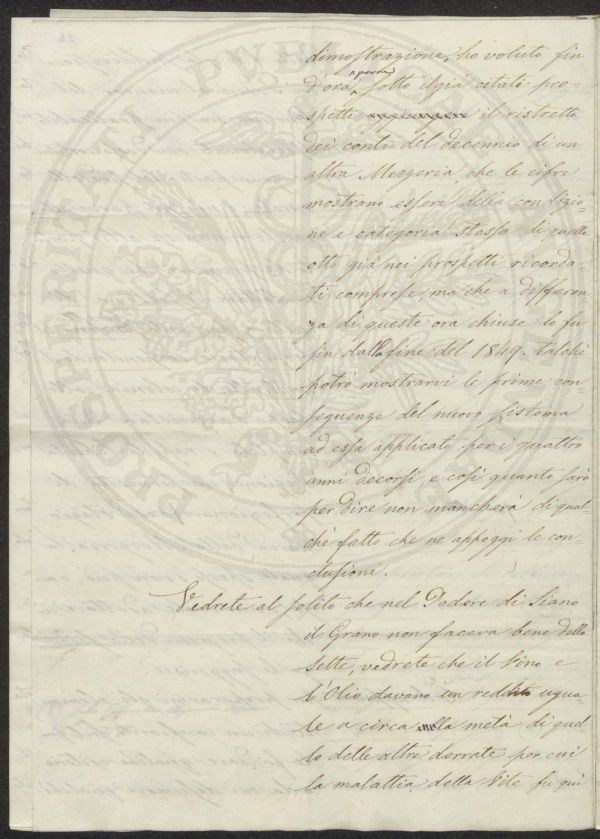 dimostrazione, ho voluto fin
d'ora, porre sotto i già citati pro-
spetti il ristretto
dei conti del decennio di un
altra Mezzeria, che le cifre
mostrano essere della condizio-
ne e categoria stessa di quelle
otto già nei prospetti ricorda-
ti comprese, ma che a differen-
za di queste ora chiuse lo fu
fin dalla fine del 1849. Talché
potrò mostrarvi le prime con-
seguenze del nuovo sistema
ad essa applicato per i quattro
anni decorsi, e così quanto sarò
per dire non mancherà di qual-
ché fatto che ne appoggi le con-
clusioni.
Vedrete al solito che nel Podere di Siano
il Grano non faceva bene dalle
sette, vedrete che il Vino e
l'Olio davano un reddito ugua-
le a circa alla metà di quel-
lo delle altre derrate, per cui
la malattia della Vite fu qui
PROSPERITATI PUBLICAE